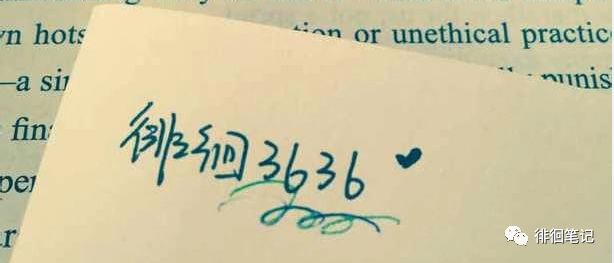 n hots tion or unethical practic
—a si punis
fin
per
r
徘徊3636
徘徊笔记